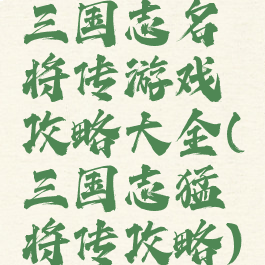 三国志名
将传游戏
攻略大全(
三国志猛
将传攻略)